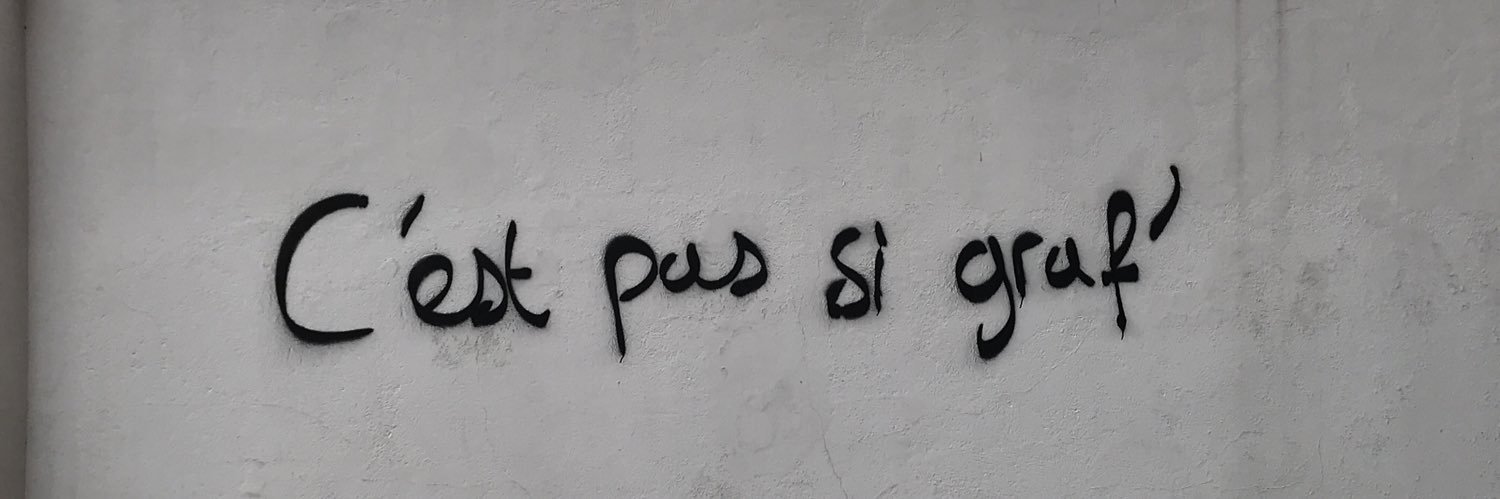 C'est pas si graf'